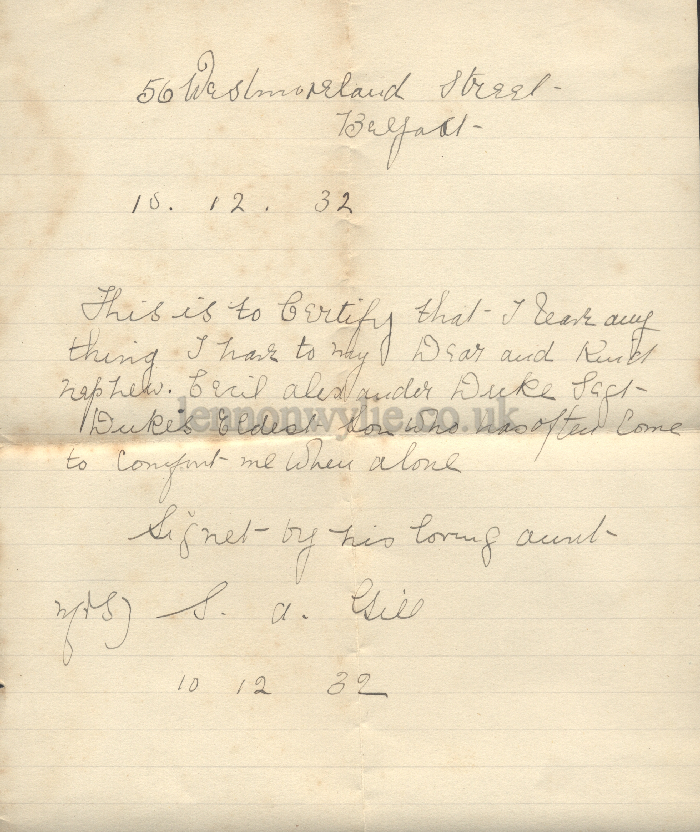 56 Westmoreland Street
Belfast
10. 12. 32
This is to Certify that I leave any
thing I have to my Dear and Kind
nephew. Cecil alexander Duke Segt
Duke's Eldest Son who has often Come
to comfort me when alone
Signet by his loving aunt
Mrs) S. a. Gill
10 12 32
lennonwylie.co.uk